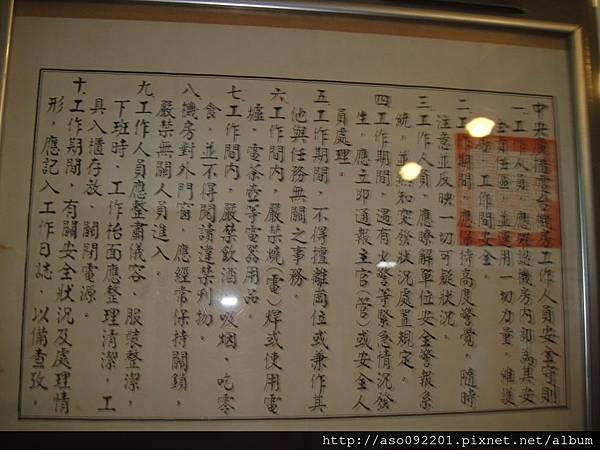 中央廣播電台機房工作人員安全守則
一.工作人員,應確認機房內部為其安
全責任區,並運用一切力量,維護
工作間安全
二.工作期間,應保持高度警覺,隨時
注意並反映一切可疑狀況。
三.工作人員,應瞭解單位安全警報系
統,並熟知突發狀況處置規定。
四.工作期間,遇有火警等緊急情況發
生,應立即通報主官(管)或安全人
員處理。
五.工作期間,不得擅離崗位或兼作其
他與任務無關之事務。
六.工作間內,嚴禁燒(電)焊或使用電
爐、電茶壺等電器用品
七.工作間內,嚴禁飲酒、吸烟、吃零
食,並不得閱讀違禁刋物。
八.機房對外門窗,應經常保持關鎖,
嚴禁無關人員進入。
九.工作人員應整肅儀容、服裝整潔,
下班時,工作枱面應整理清潔,工
具入櫃存放、關閉電源。
十.工作期間,有關安全狀況及處理情
形,應記入工作日誌,以備查攷。
http://aso092201.pixnet.net/album